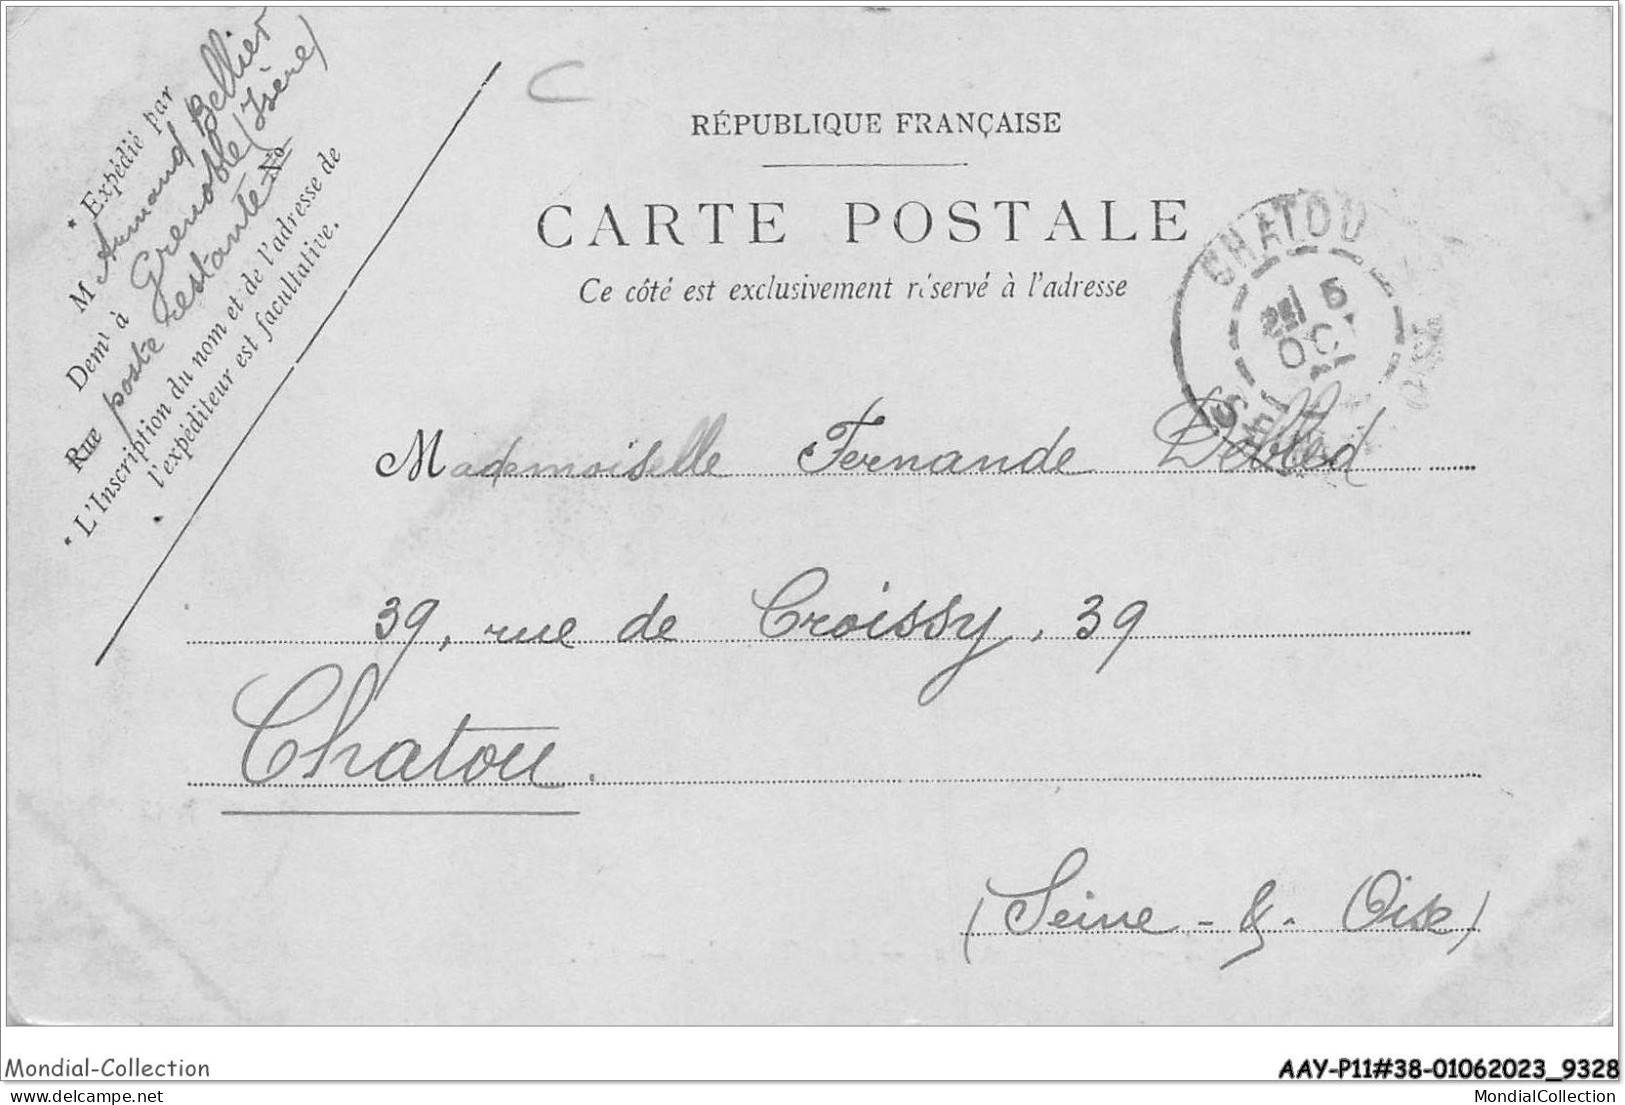 * Expédié par
M Armand Bellier
Demt à Grenoble (Isère)
Rue poste restante No
* L'Inscription du nom et de l'adresse de
l'expéditeur est facultative.
RÉPUBLIQUE FRANÇAISE
CARTE POSTALE
Ce côté est exclusivement réservé à l'adresse
CHATOU
5
OCT
Mademoiselle Fernande Debled
39, rue de Croissy, 39
Chatou.
(Seine-&-Oise)
Mondial-Collection
AAY-P11#38-01062023_9328
www.delcampe.net
MondialCollection